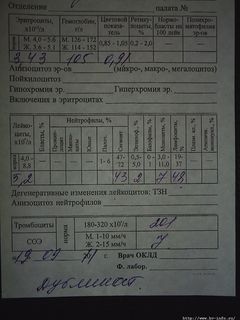 Отделение палата №
Эритроциты, х10¹²/л Гемоглобин, г/л Цветовой показатель Ретикулоциты, % Нормобласты на 100 лейк
М. 4,0 - 5.6 М. 126 - 172 0,85 - 1,05 0,2 - 2,0
Ж. 3.6 - 5.1 Ж. 114 - 152
3.43 105 0,91
Анизоцитоз эр-ов (микро-, макро-, мегалоцитоз)
Пойкилоцитоз
Гипохромия эр. Гиперхромия эр.
Включения в эритроцитах
Лейкоциты, х10⁹/л Нейтрофилы, %
4,0 - 8,8 1- 6 47-72 0,5-5,0 0 - 1 3,0 - 11,0 19-37
5,2 43 2 7 48
Дегенеративные изменения лейкоцитов: ТЗН
Анизоцитоз нейтрофилов
Тромбоциты норма 180-320 х10⁹/л 201
СОЭ М. 1-10 мм/ч 7
Ж. 2-15 мм/ч
19 09 г. Врач ОКЛД
Ф. лабор.
дубликат